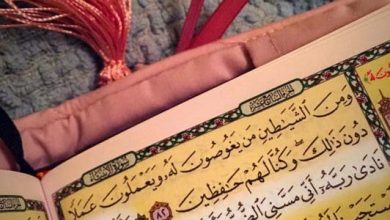 وَمِنَ ٱلشَّيَٰطِينِ مَن يَغُوصُونَ لَهُۥ وَيَعْمَلُونَ عَمَلًا
دُونَ ذَٰلِكَۖ وَكُنَّا لَهُمْ حَٰفِظِينَ ٨٢
نَادَىٰ رَبَّهُۥٓ أَنِّى مَسَّنِىَ